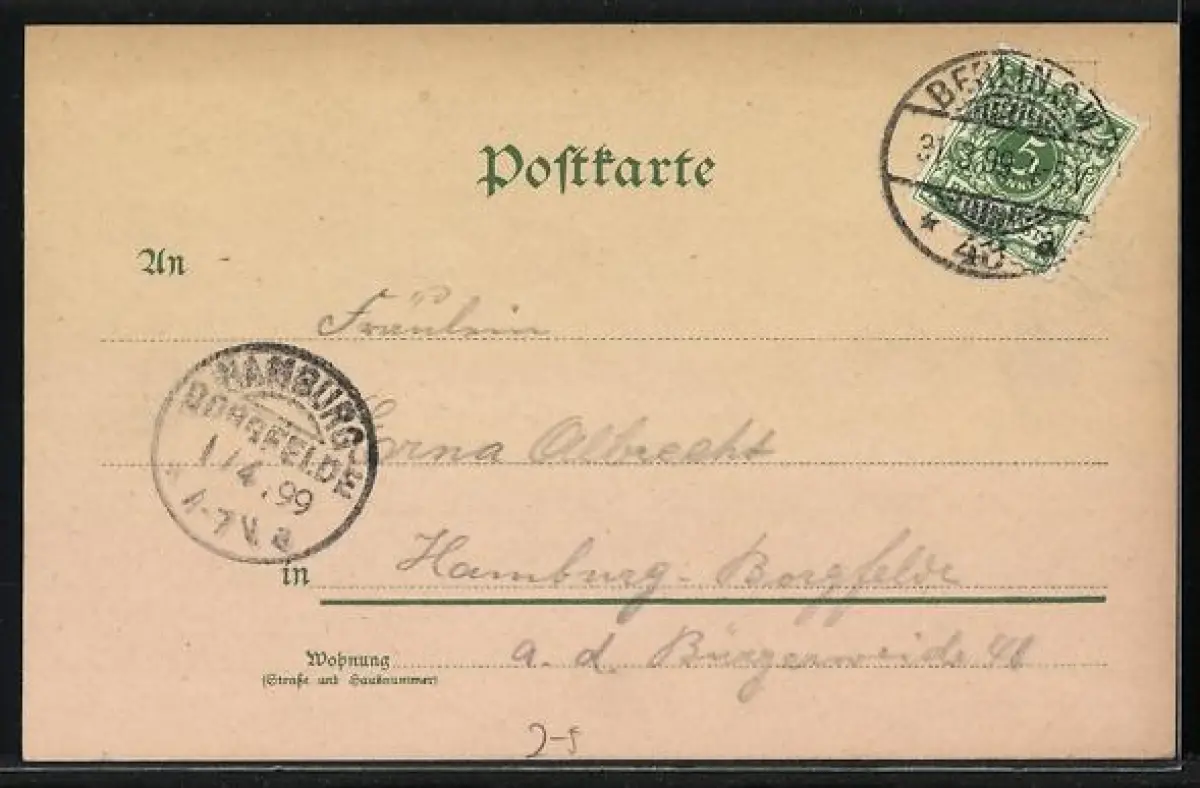 Postkarte
BERLIN. S.W.
31.3.99.
5
* 46 a
An
Fräulein
Erna Albrecht
HAMBURG-
BORGFELDE
1/4.99
-7V. a
in Hamburg-Borgfelde
Wohnung a. d. Bürgerweide 46
(Straße und Hausnummer)